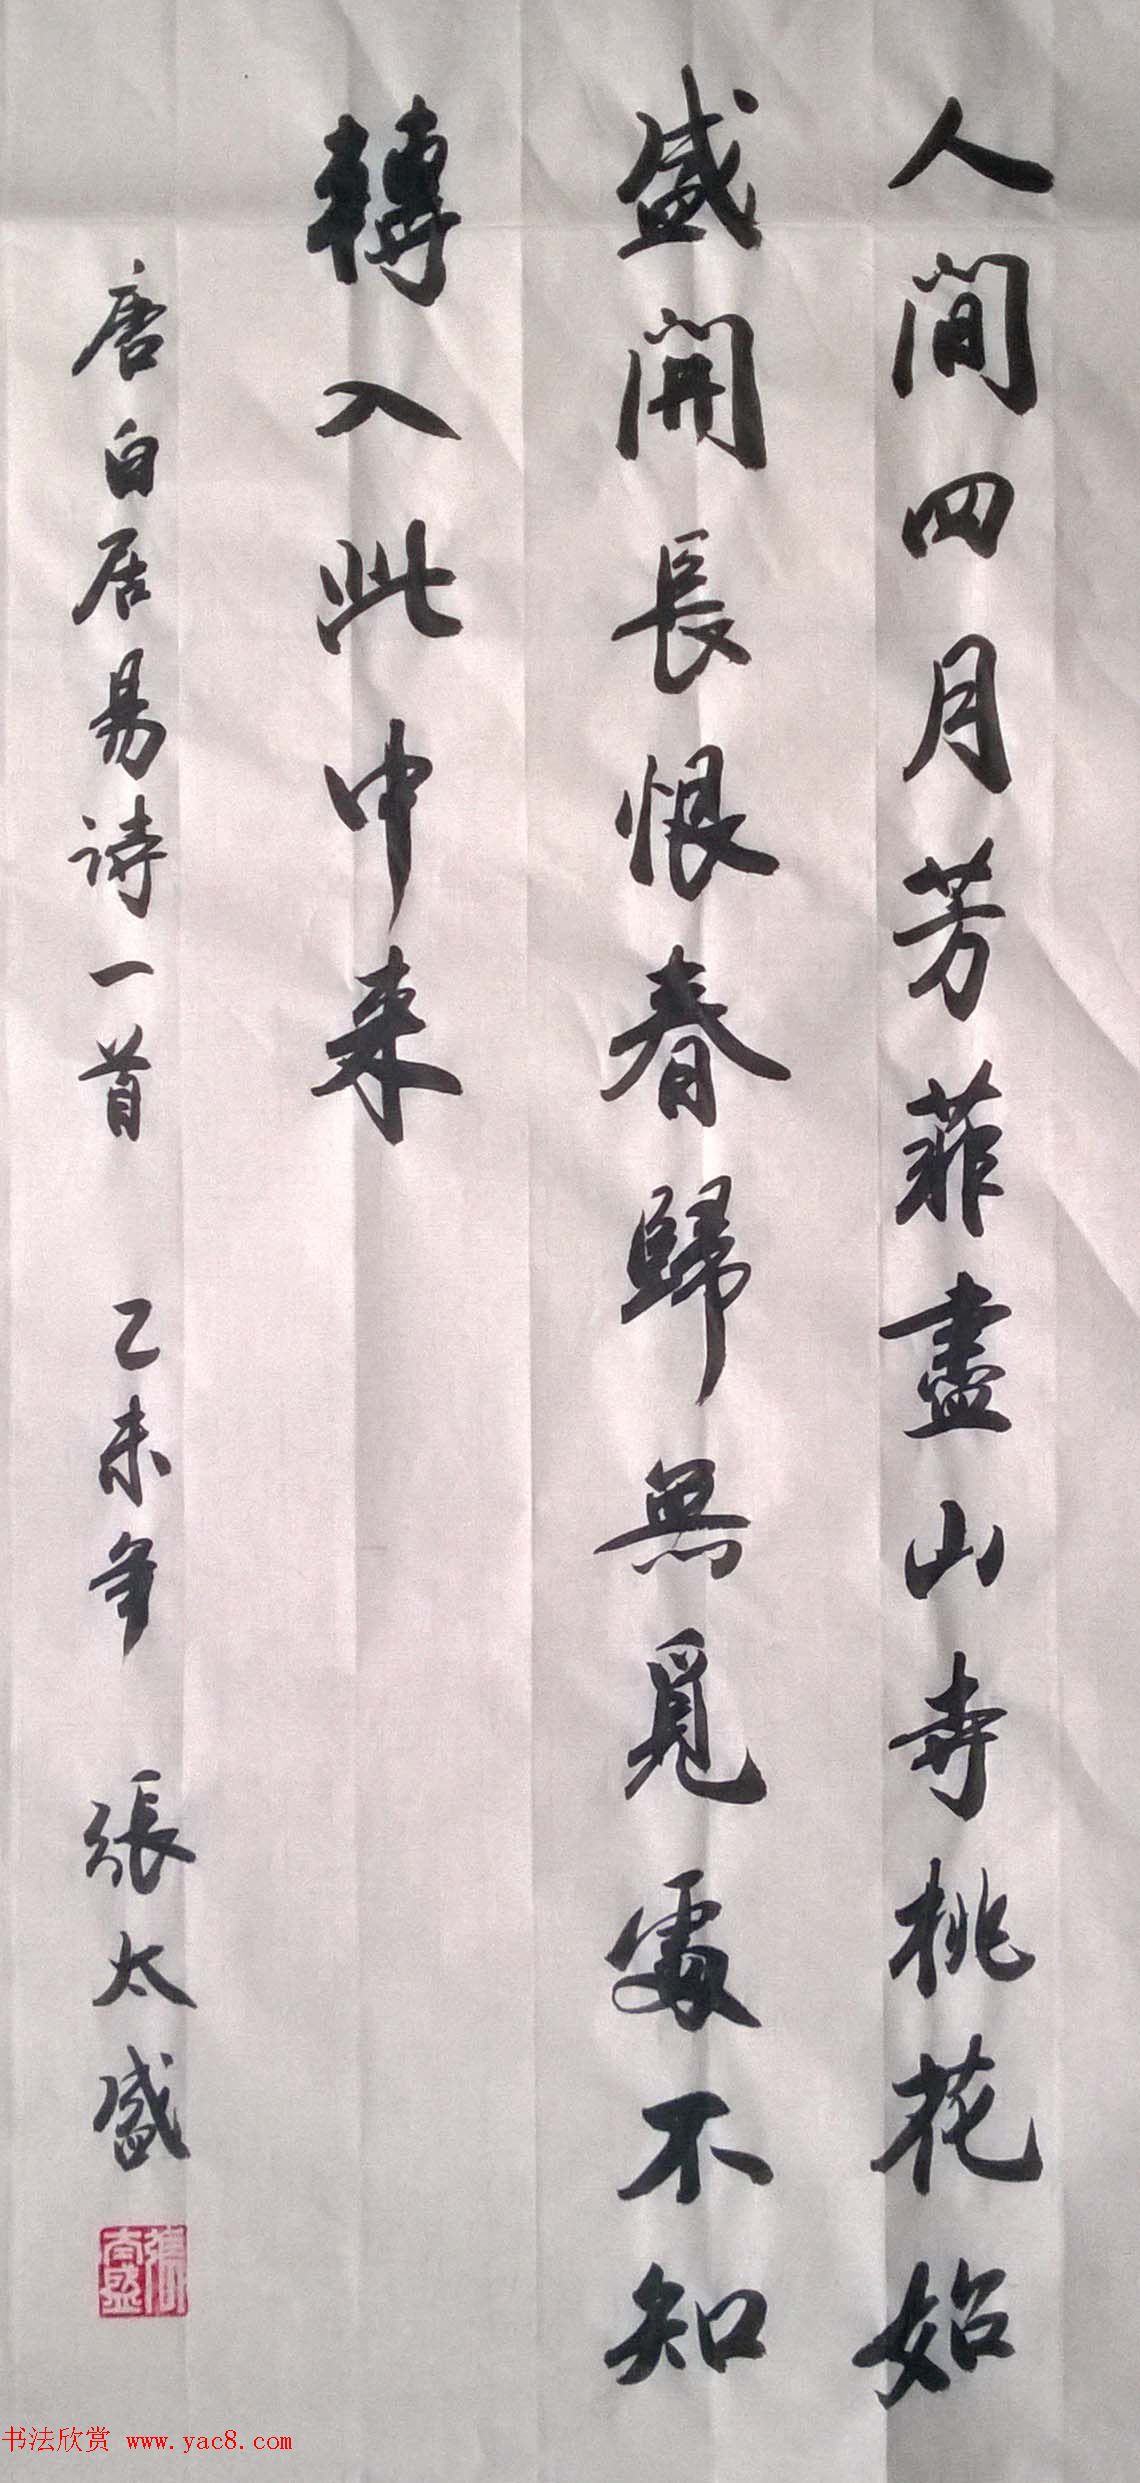 人間四月芳菲盡山寺桃花始
盛開長恨春歸無覓處不知
轉入此中來
唐白居易詩一首 乙未年 張太盛
張太盛
书法欣赏 www.yac8.com